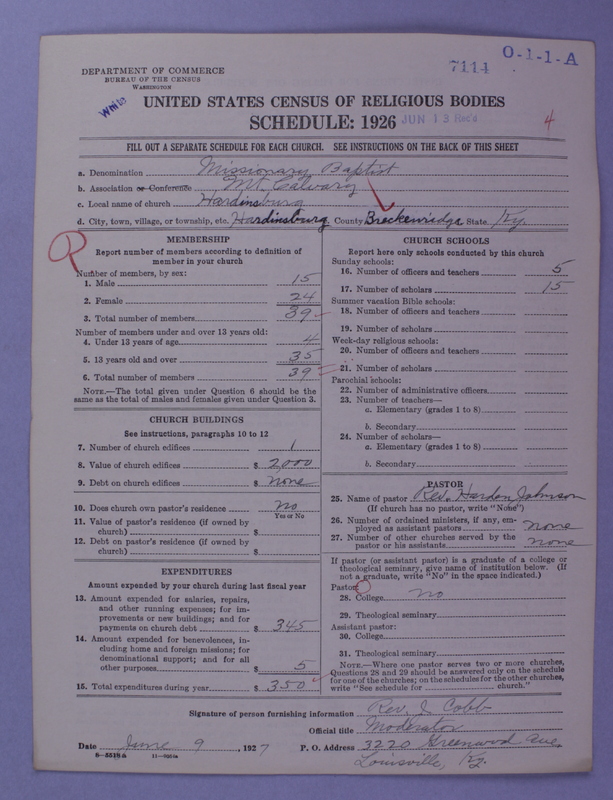 7114 O-1-1-A
DEPARTMENT OF COMMERCE
BUREAU OF THE CENSUS
WASHINGTON
UNITED STATES CENSUS OF RELIGIOUS BODIES
SCHEDULE: 1926 JUN 13 Rec'd 4
FILL OUT A SEPARATE SCHEDULE FOR EACH CHURCH. SEE INSTRUCTIONS ON THE BACK OF THIS SHEET
a. Denomination Missionary Baptist
b. Association or Conference Mt. Calvary
c. Local name of church Hardinsburg
d. City, town, village, or township, etc. Hardinsburg County Breckenridge State Ky.
MEMBERSHIP
Report number of members according to definition of
member in your church
Number of members, by sex:
1. Male 15
2. Female 24
3. Total number of members 39
Number of members under and over 13 years old:
4. Under 13 years of age 4
5. 13 years old and over 35
6. Total number of members 39
NOTE.—The total given under Question 6 should be the
same as the total of males and females given under Question 3.
CHURCH BUILDINGS
See instructions, paragraphs 10 to 12
7. Number of church edifices 1
8. Value of church edifices $ 2,000
9. Debt on church edifices $ none
10. Does church own pastor's residence no
Yes or No
11. Value of pastor's residence (if owned by
church) $
12. Debt on pastor's residence (if owned by
church) $
EXPENDITURES
Amount expended by your church during last fiscal year
13. Amount expended for salaries, repairs,
and other running expenses; for im-
provements or new buildings; and for
payments on church debt $ 345
14. Amount expended for benevolences, in-
cluding home and foreign missions; for
denominational support; and for all
other purposes $ 5
15. Total expenditures during year $ 350
CHURCH SCHOOLS
Report here only schools conducted by this church
Sunday schools:
16. Number of officers and teachers 5
17. Number of scholars 15
Summer vacation Bible schools:
18. Number of officers and teachers
19. Number of scholars
Week-day religious schools:
20. Number of officers and teachers
21. Number of scholars
Parochial schools:
22. Number of administrative officers
23. Number of teachers—
a. Elementary (grades 1 to 8)
b. Secondary
24. Number of scholars—
a. Elementary (grades 1 to 8)
b. Secondary
PASTOR
25. Name of pastor Rev. Harden Johnson
(If church has no pastor, write "None")
26. Number of ordained ministers, if any, em-
ployed as assistant pastors none
27. Number of other churches served by the
pastor or his assistants none
If pastor (or assistant pastor) is a graduate of a college or
theological seminary, give name of institution below. (If
not a graduate, write "No" in the space indicated.)
Pastor:
28. College no
29. Theological seminary
Assistant pastor:
30. College
31. Theological seminary
NOTE.—Where one pastor serves two or more churches,
Questions 28 and 29 should be answered only on the schedule
for one of the churches; on the schedules for the other churches,
write "See schedule for church."
Signature of person furnishing information Rev. J. Cobb
Official title Moderator
Date June 9, 1927 P. O. Address 3220 Greenwood Ave
Louisville, Ky.